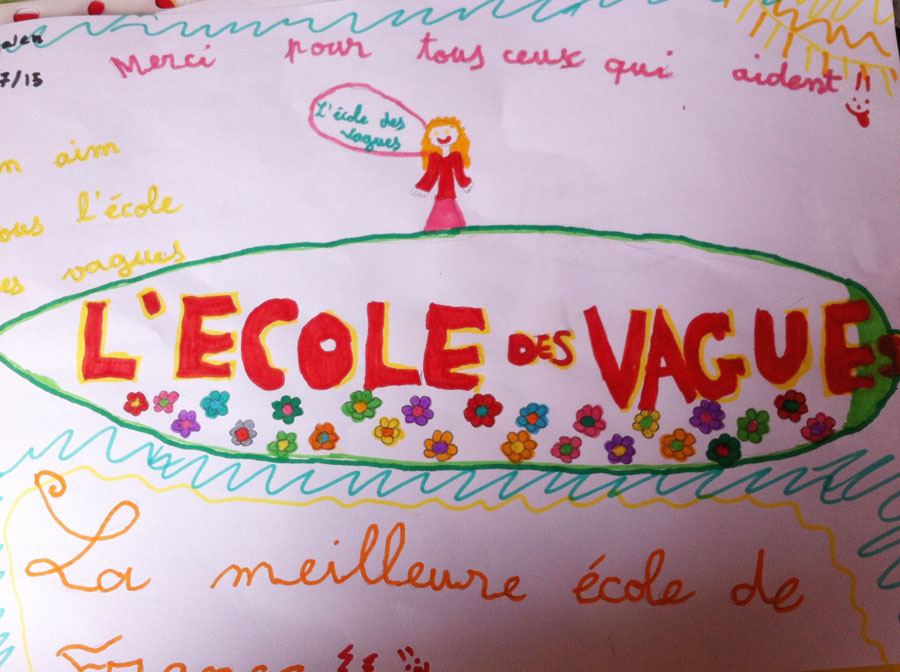 Merci pour tous ceux qui aident !!
7/15
L'école des
vagues
n aim
ous l'école
es vagues
L'ECOLE DES VAGUES
La meilleure école de
France !!